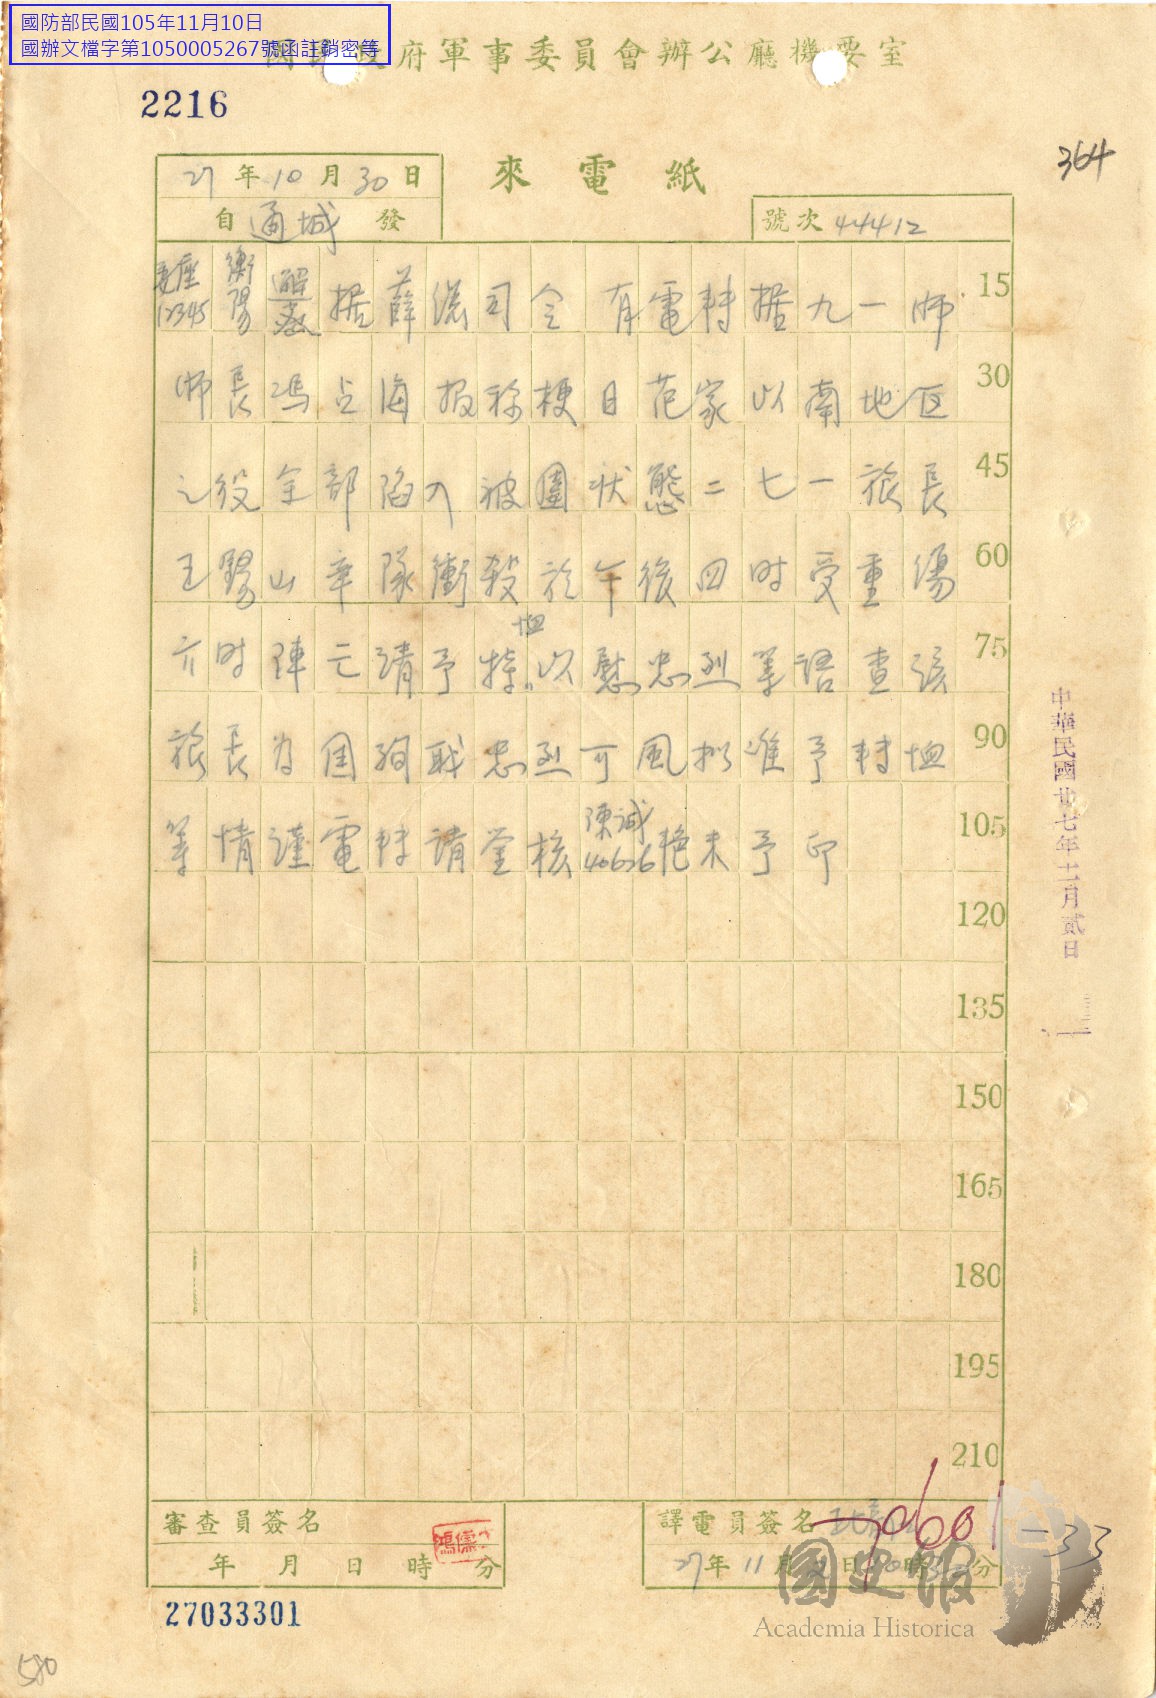 國防部民國105年11月10日
國辦文檔字第1050005267號函註銷密等
國民政府軍事委員會辦公廳機要室
2216
364
來電紙
27年10月30日
自通城發
號次 44412
委座12345 衡陽 據薛總司令有電轉据九一师 15
师長馮占海报称梗日范家以南地区 30
之役全部陷入被圍状態二七一旅長 45
王錫山率隊衝殺於午後四时受重傷 60
六时陣亡請予特恤以慰忠烈等語查該 75
旅長為国殉职忠烈可風拟准予转恤 90
等情謹電转請鉴核陳誠40626艳未予印 105
120
135
150
165
180
195
210
中華民國廿七年十一月貳日
審查員簽名
年 月 日 時 分
譯電員簽名
27年11月 日 時 分
27033301
580
33
國史館
Academia Historica